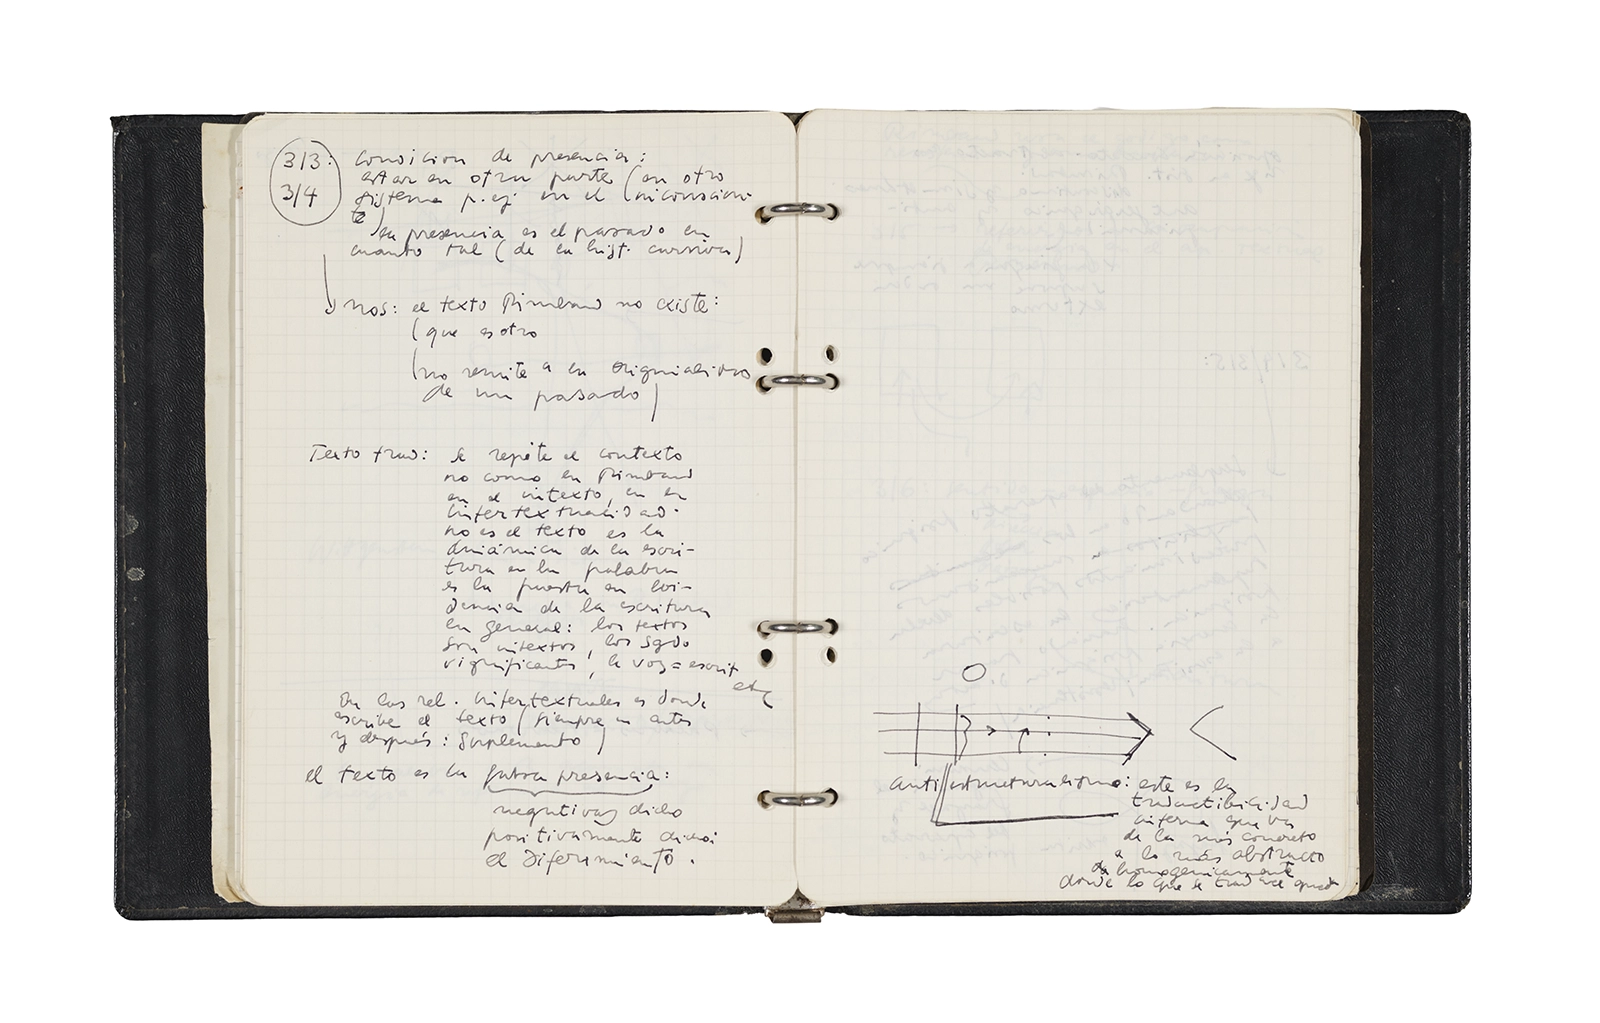 3/3:
3/4
condición de presencia:
estar en otra parte (en otro
sistema p. ej en el inconscien-
te)
su presencia es el pasado en
cuanto tal (de la hist. cursiva)
nos: el texto Rimbaud no existe:
(que es otro
(no remite a la originalidad
de un pasado)
Texto trad: se repite el contexto
no como en Rimbaud
en el intexto, en la
intertextualidad.
no es el texto es la
dinámica de la escri-
tura en la palabra
es la puesta en evi-
dencia de la escritura
en general: los textos
son intextos, los sgdo
significantes, la voz = escrit
etc
En las rel. intertextuales es donde
escribe el texto (siempre en antes
y después: suplemento)
el texto es la futura presencia:
negativa/ dicho
positivamente dicho:
el diferimiento.
anti//estructuralismo: este es la
traductibilidad
interna que va
de lo más concreto
a lo más abstracto
homogenicamente
donde lo que se traduce